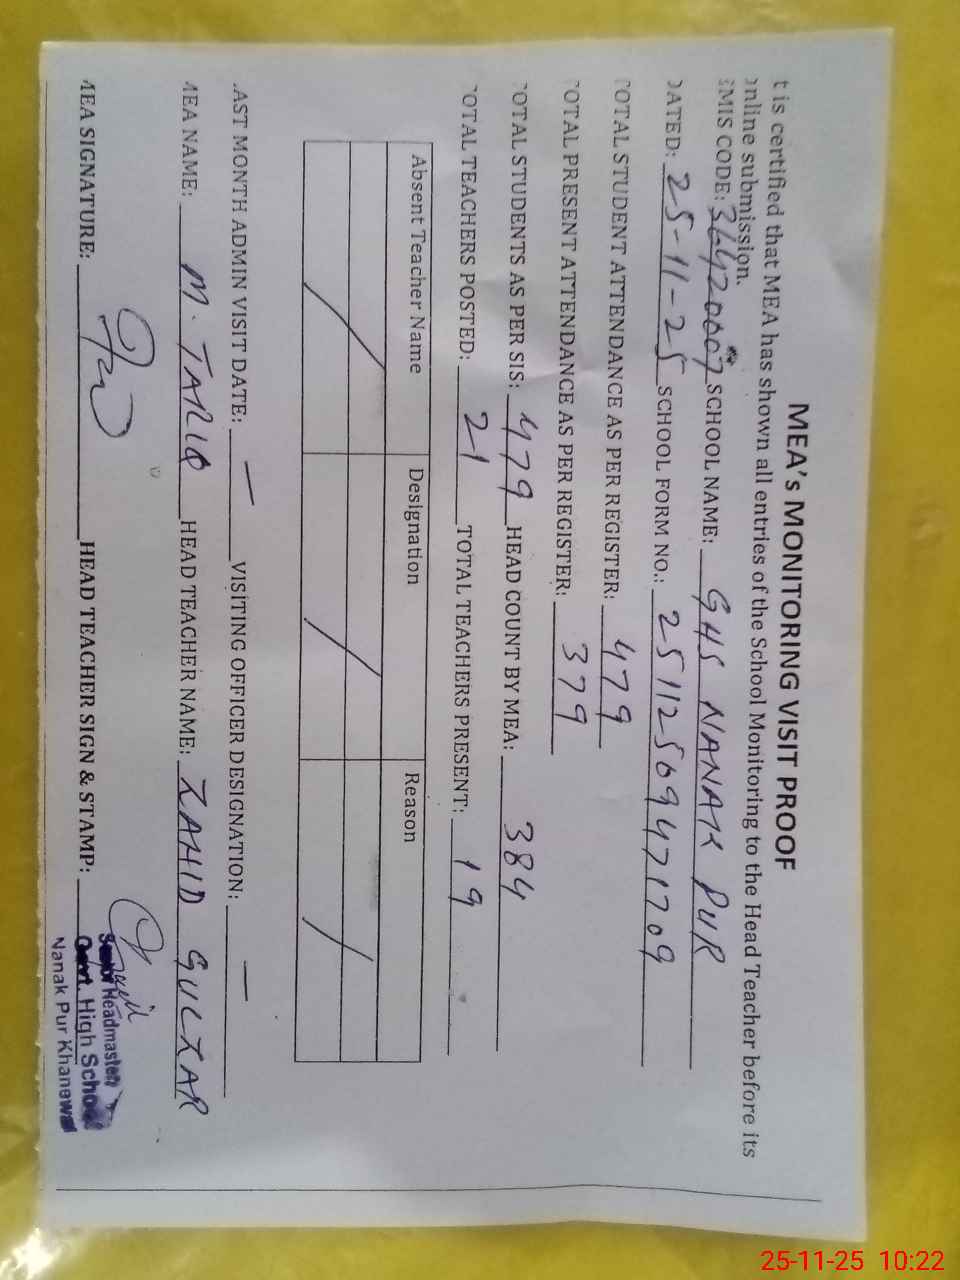 MEA's MONITORING VISIT PROOF
t is certified that MEA has shown all entries of the School Monitoring to the Head Teacher before its
online submission.
EMIS CODE: 36420007 SCHOOL NAME: GHS NANAK PUR
DATED: 25-11-25 SCHOOL FORM NO.: 251125694471709
TOTAL STUDENT ATTENDANCE AS PER REGISTER: 479
TOTAL PRESENT ATTENDANCE AS PER REGISTER: 379
TOTAL STUDENTS AS PER SIS: 479 HEAD COUNT BY MEA: 384
TOTAL TEACHERS POSTED: 21 TOTAL TEACHERS PRESENT: 19
Absent Teacher Name Designation Reason
LAST MONTH ADMIN VISIT DATE: — VISITING OFFICER DESIGNATION: —
MEA NAME: M. TARIQ HEAD TEACHER NAME: ZAHID GULZAR
MEA SIGNATURE: HEAD TEACHER SIGN & STAMP:
Senior Headmaster
Govt. High School
Nanak Pur Khanewal
25-11-25 10:22